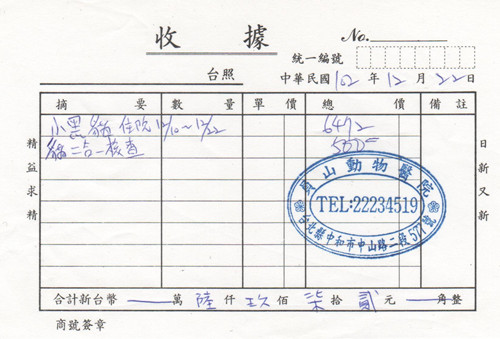 收據
No.
統一編號
台照 中華民國102年12月22日
摘要 數量 單價 總價 備註
小黑貓 住院 12/10~12/22 6472
貓二合一檢查 500
精益求精
日新又新
山動物醫院
TEL:22234519
台北縣中和市中山路二段577號
合計新台幣 萬陸仟玖佰柒拾貳元 角整
商號簽章